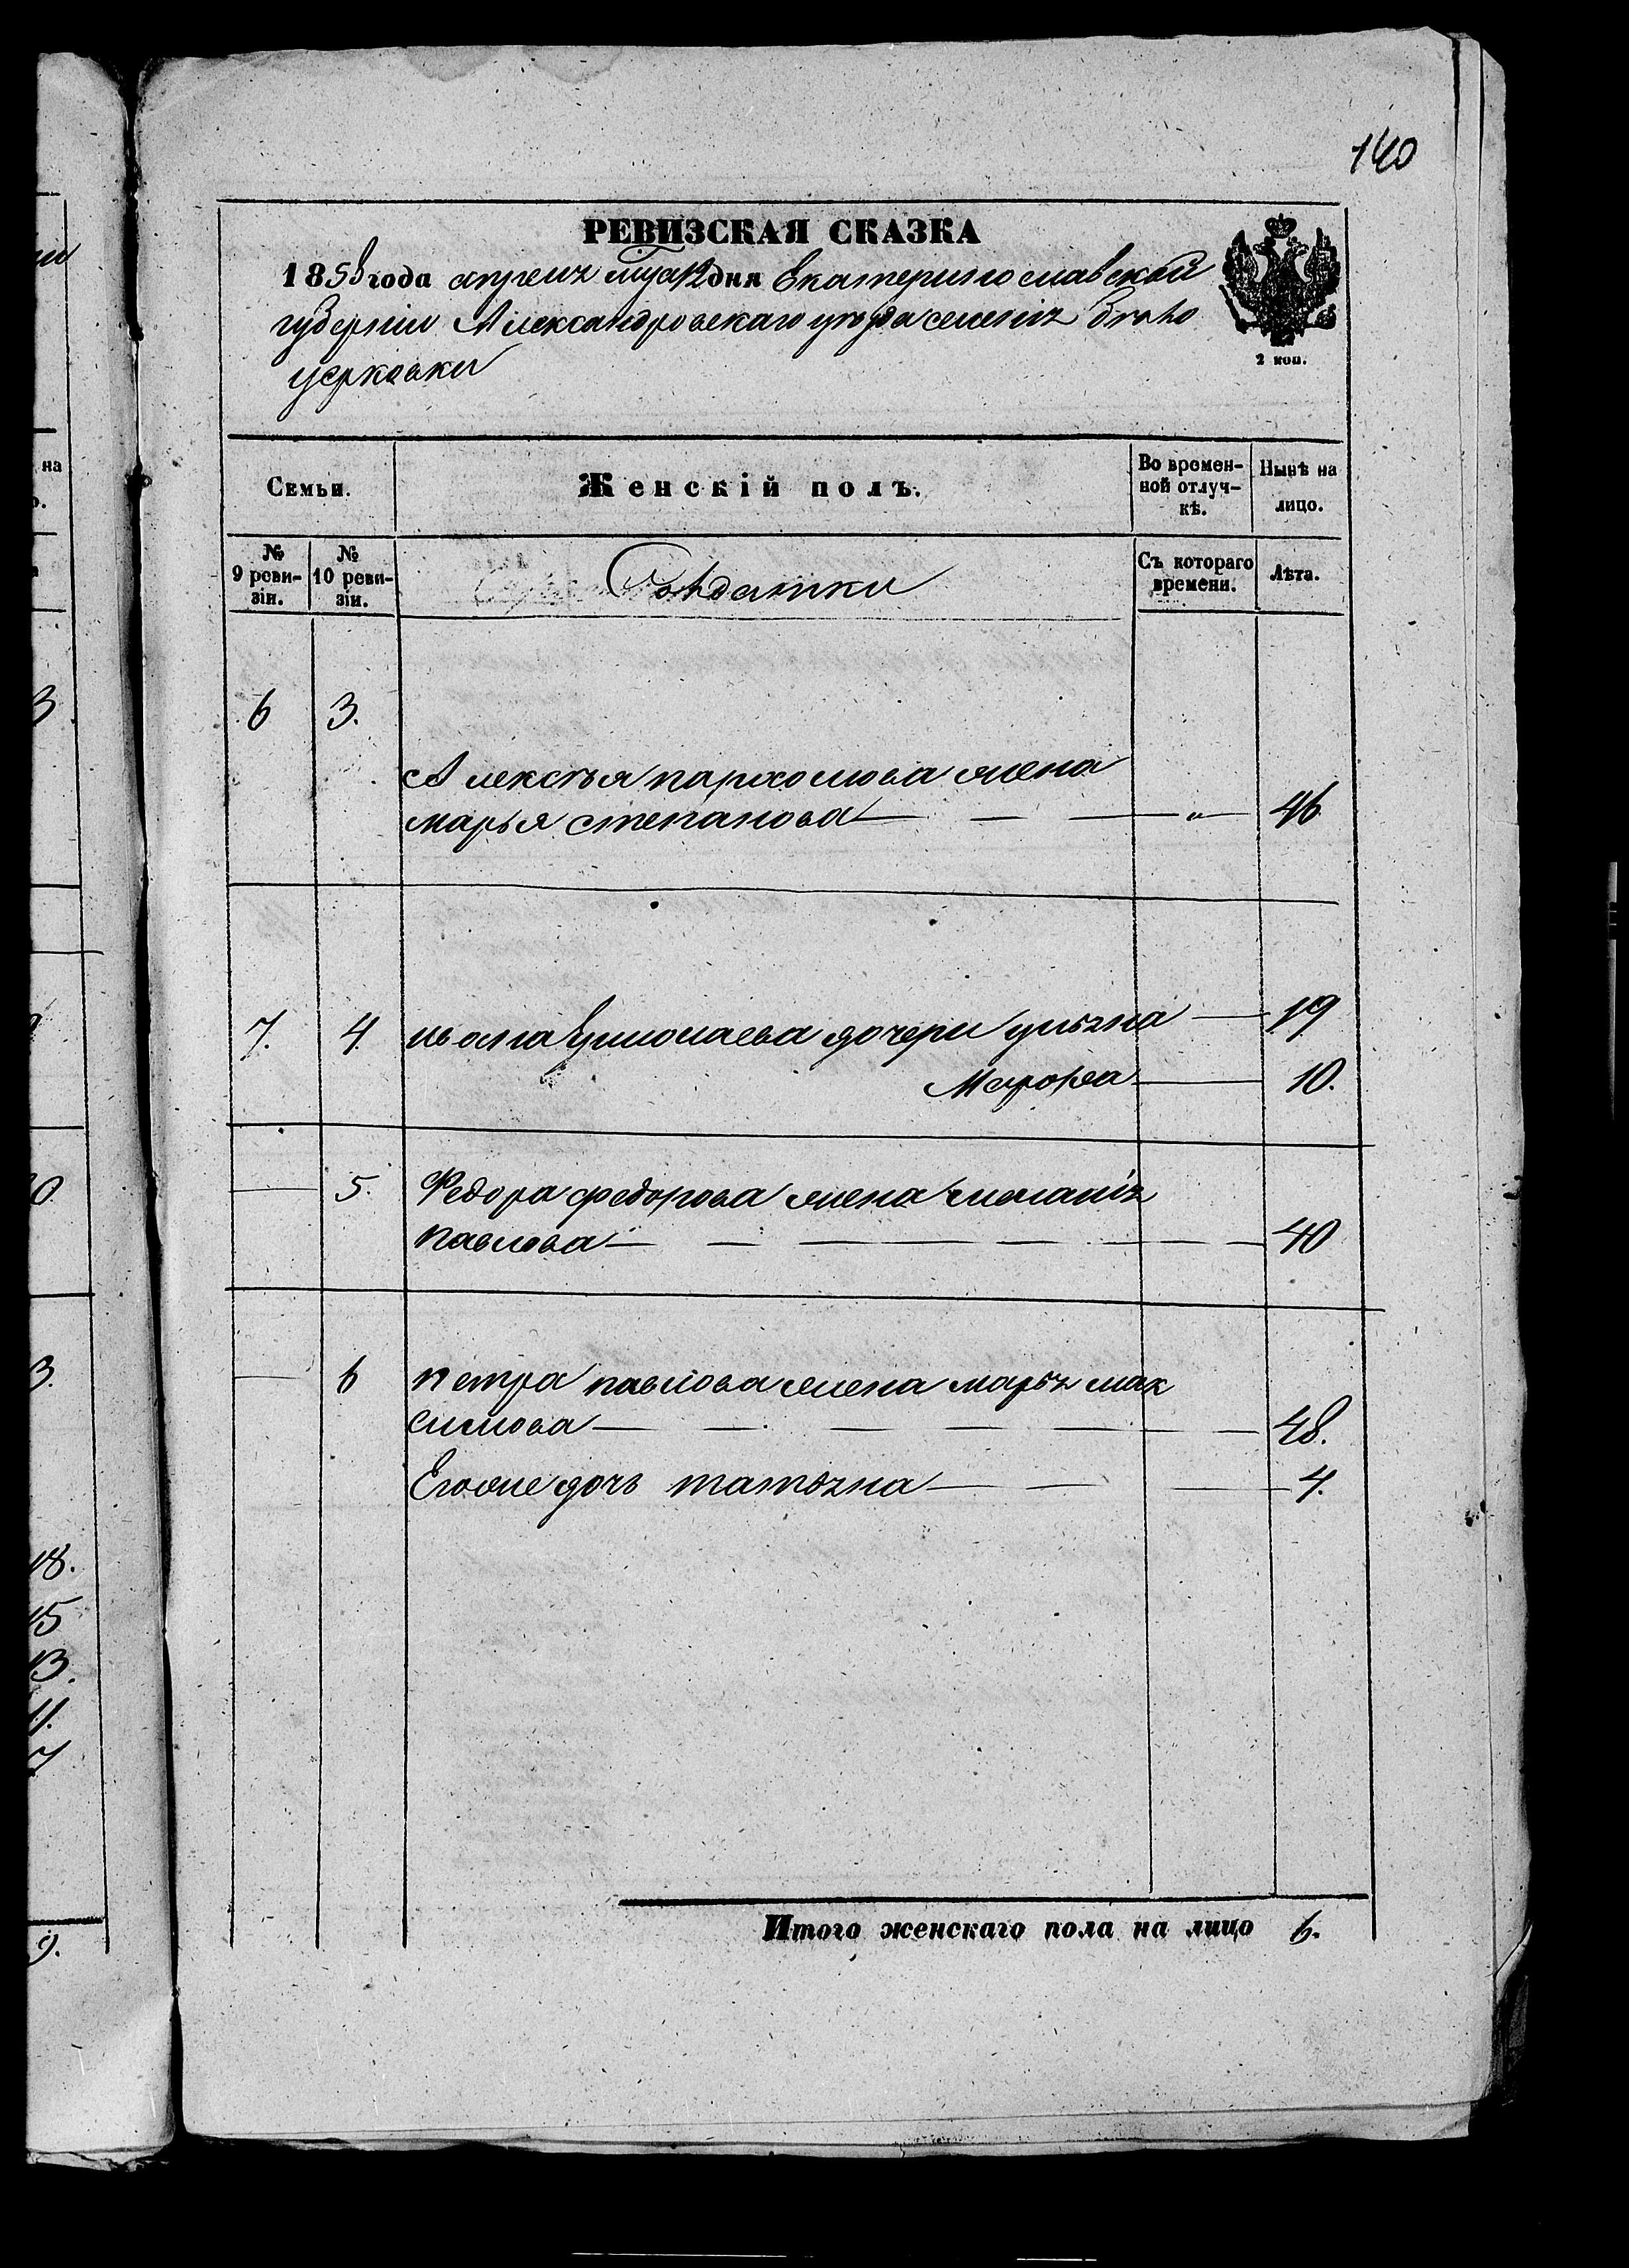 140
РЕВИЗСКАЯ СКАЗКА
1858 года апреля мца 12 дня Екатеринославской
губернiи Александровскаго уезда селенiя Бѣло
церковки
2 коп.
Семьи.
Женскiй полъ.
Во времен-
ной отлуч-
кѣ.
Нынѣ на
лицо.
№
9 реви-
зiи.
№
10 реви-
зiи.
Солдатки
Съ котораго
времени.
Лѣта.
6 3.
Алексѣя пархомова жена
марья степанова — — — „ — 46
7. 4. ивана дочери ульяна — 19
Марфа — 10.
— 5. Федора федорова жена меланiя
павлова — — — — — — 40
— 6 петра павлова жена марья мак
симова — — — — — — 48.
Егоже дочь татьяна — — — 4.
Итого женскаго пола на лицо 6.
на
3
0
3.
18.
15
13.
11.
7
9.